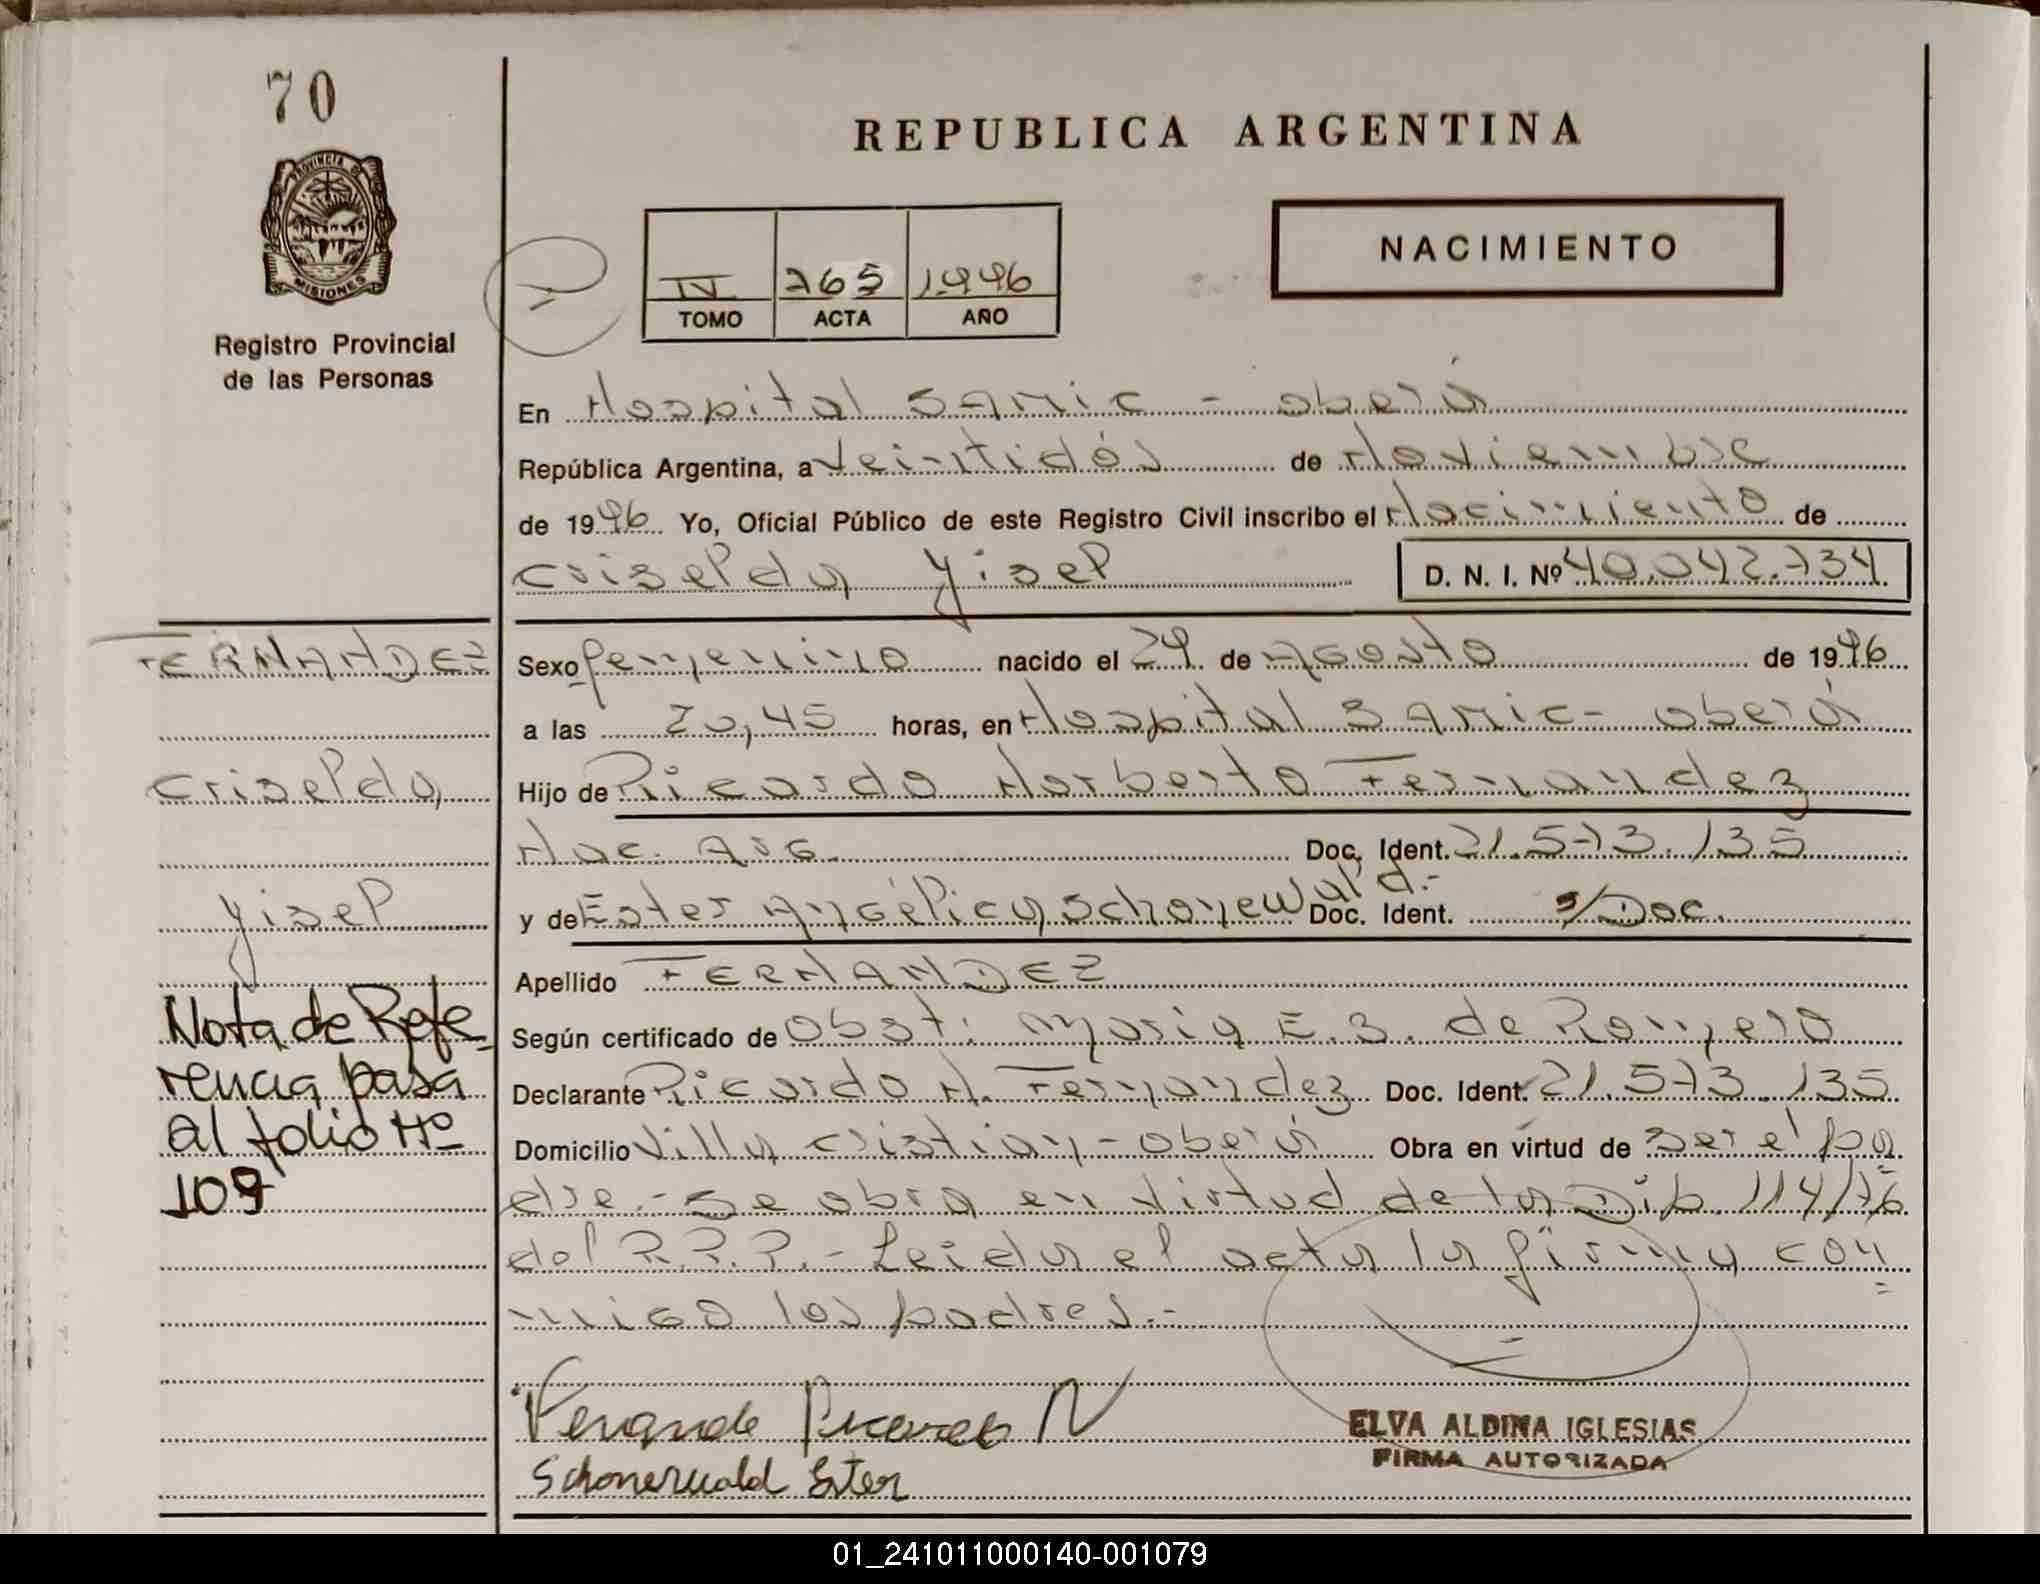 70
PROVINCIA DE
MISIONES
Registro Provincial
de las Personas
REPUBLICA ARGENTINA
NACIMIENTO
IV 765 1.996
TOMO ACTA AÑO
En Hospital SAMIC - oberá
República Argentina, a Veintidós de Noviembre
de 1996 Yo, Oficial Público de este Registro Civil inscribo el Nacimiento de
criselda yisel D. N. I. Nº 40.042.734
FERNANDEZ
criselda
yisel
Nota de Refe
rencia pasa
al folio Nº
109
Sexo femenino nacido el 29 de Agosto de 1996
a las 20,45 horas, en Hospital SAMIC - oberá
Hijo de Ricardo Norberto Fernandez
Nac. ARG. Doc. Ident. 21.573.135
y de Ester Angélica Schonewald.- Doc. Ident. s/Doc.
Apellido FERNANDEZ
Según certificado de Obst. Maria E. B. de Romero
Declarante Ricardo N. Fernandez Doc. Ident. 21.573.135
Domicilio Villa cristian - oberá Obra en virtud de ser el pa
dre.- Se obra en virtud de la Dip. 114/76
del R.P.P.- Leida el acta la firma con
migo los padres.-
Schonerwald Ester
ELVA ALDINA IGLESIAS
FIRMA AUTORIZADA
01_241011000140-001079